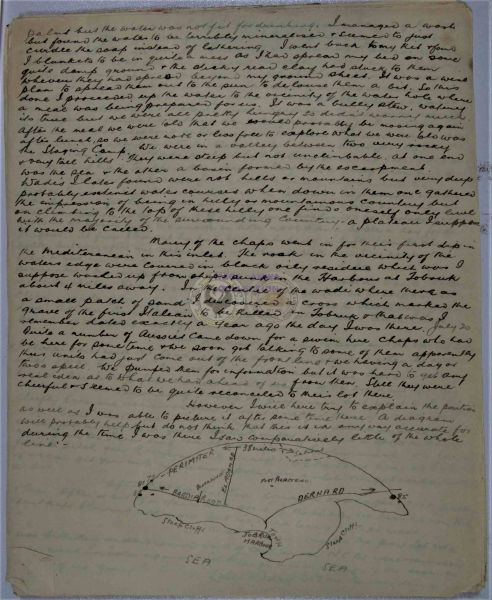 but the water was not fit for drinking. I managed a wash
but found the water to be terribly mineralised & seemed to just
curdle the soap instead of lathering. I went back to my kit & found
blankets to be in quite a mess as I had spread my bed on some
quite damp ground & the sticky red clay had stuck to them
wherever they had beyond my ground sheet. It was a wise
plan to spread them out to the sun to delouse them a bit. So this
done I proceeded up the water to the vicinity of the water hole where
a meal was being prepared for us. It was a bully stew,
its true but we were all pretty hungry
After the meal we were told that we would probably be moving again
after lunch, so we were more or less free to explore what we were told was
the Staging Camp. We were in a valley between two very rocky
& very tall hills. They were steep but not unclimbable. At one end
was the sea & the other a basin formed by the escarpment.
Wadies I later found were not hills or mountains but very deep
probably extinct water courses when down in them one gathered
the impression of being in hilly or mountainous country but
on climbing to the top of these hills one finds oneself only level
with the majority of the surrounding country - a plateau I suppose
it would be called.
Many of the chaps went in for their first dip in
the Mediterranean in this inlet. The rock in the vicinity of the
waters edge were covered in black oily residue which was I
suppose washed up from ships sunk in the Harbour at Tobruk
about 4 miles away. In the centre of the wadi where there was
a small patch of sand there was a cross which marked the
grave of the first Italian to be killed in Tobruk & that was I
remember dated exactly a year ago the day I was there. July 20
Quite a number of Aussies came down for a swim here chaps who had
be here for some time & we soon got talking to some of them apparently
thus units had just come out of the front line & were having a day or
two's spell. We pumped them for information but it was hard to get any
real idea as to what we had ahead of us from them. Still they were
cheerful & seemed to be quite reconciled to their lot there.
However I will here try to explain the position
as well as I was able to picture it after some time here. A diagram
will probably help but do not think that this is in any way accurate for
during the time I was there I saw comparatively little of the whole
PERIMETER
38 miles
BARDIA ROAD
EL ADEM RD
DERNA RD
STEEP CLIFFS
TOBRUK
HARBOUR
TOWN
STEEP CLIFFS
SEA
SEA